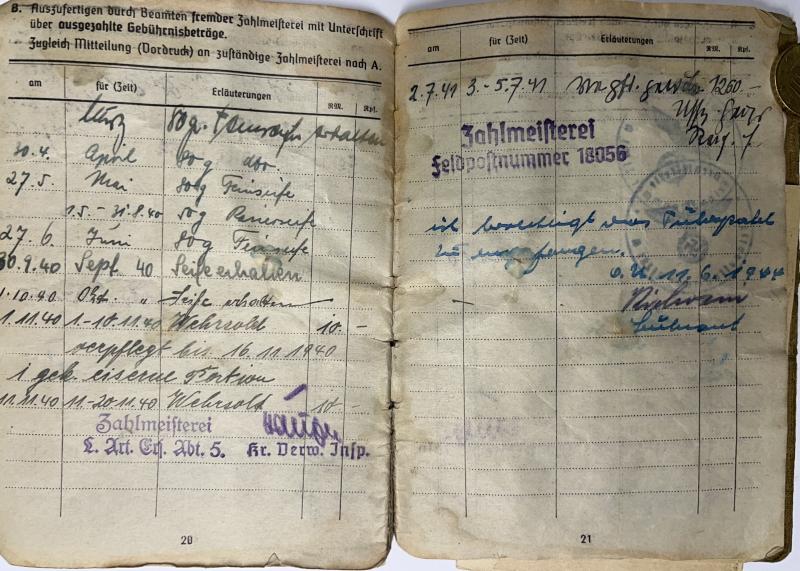 B. Auszufertigen durch Beamten fremder Zahlmeisterei mit Unterschrift
über ausgezahlte Gebührnisbeträge.
Zugleich Mitteilung (Vordruck) an zuständige Zahlmeisterei nach A.
am für (Zeit) Erläuterungen RM. Rpf.
März 80g. erhalten
30.4. April 80g dto
27.5. Mai 80g Feinseife
1.5. - 31.8.40 50g Rasierseife
27.6. Juni 80g Feinseife
30.9.40 Sept. 40 Seife erhalten
1.10.40 Okt. " Seife erhalten
1.11.40 1.-10.11.40 Wehrsold 10.-
verpflegt bis 16.11.1940
1 gek. eiserne Portion
11.11.40 11.-20.11.40 Wehrsold 10.-
Zahlmeisterei
L. Art. Ers. Abt. 5. Kr. Verw. Insp.
20
am für (Zeit) Erläuterungen RM. Rpf.
2.7.41 3.-5.7.41 1260.-
Uffz.
Zahlmeisterei
Feldpostnummer 18056
ist berechtigt das
zu empfangen.
O.U. 11.6.1944
Leutnant
21